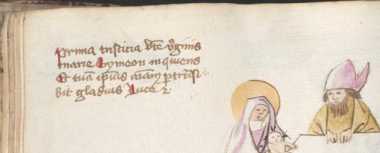 Prima tristicia bte v̉ginis
marie Symeon inquiens
Et tuā ipius aīam ptrāsi
bit gladius Luce 2